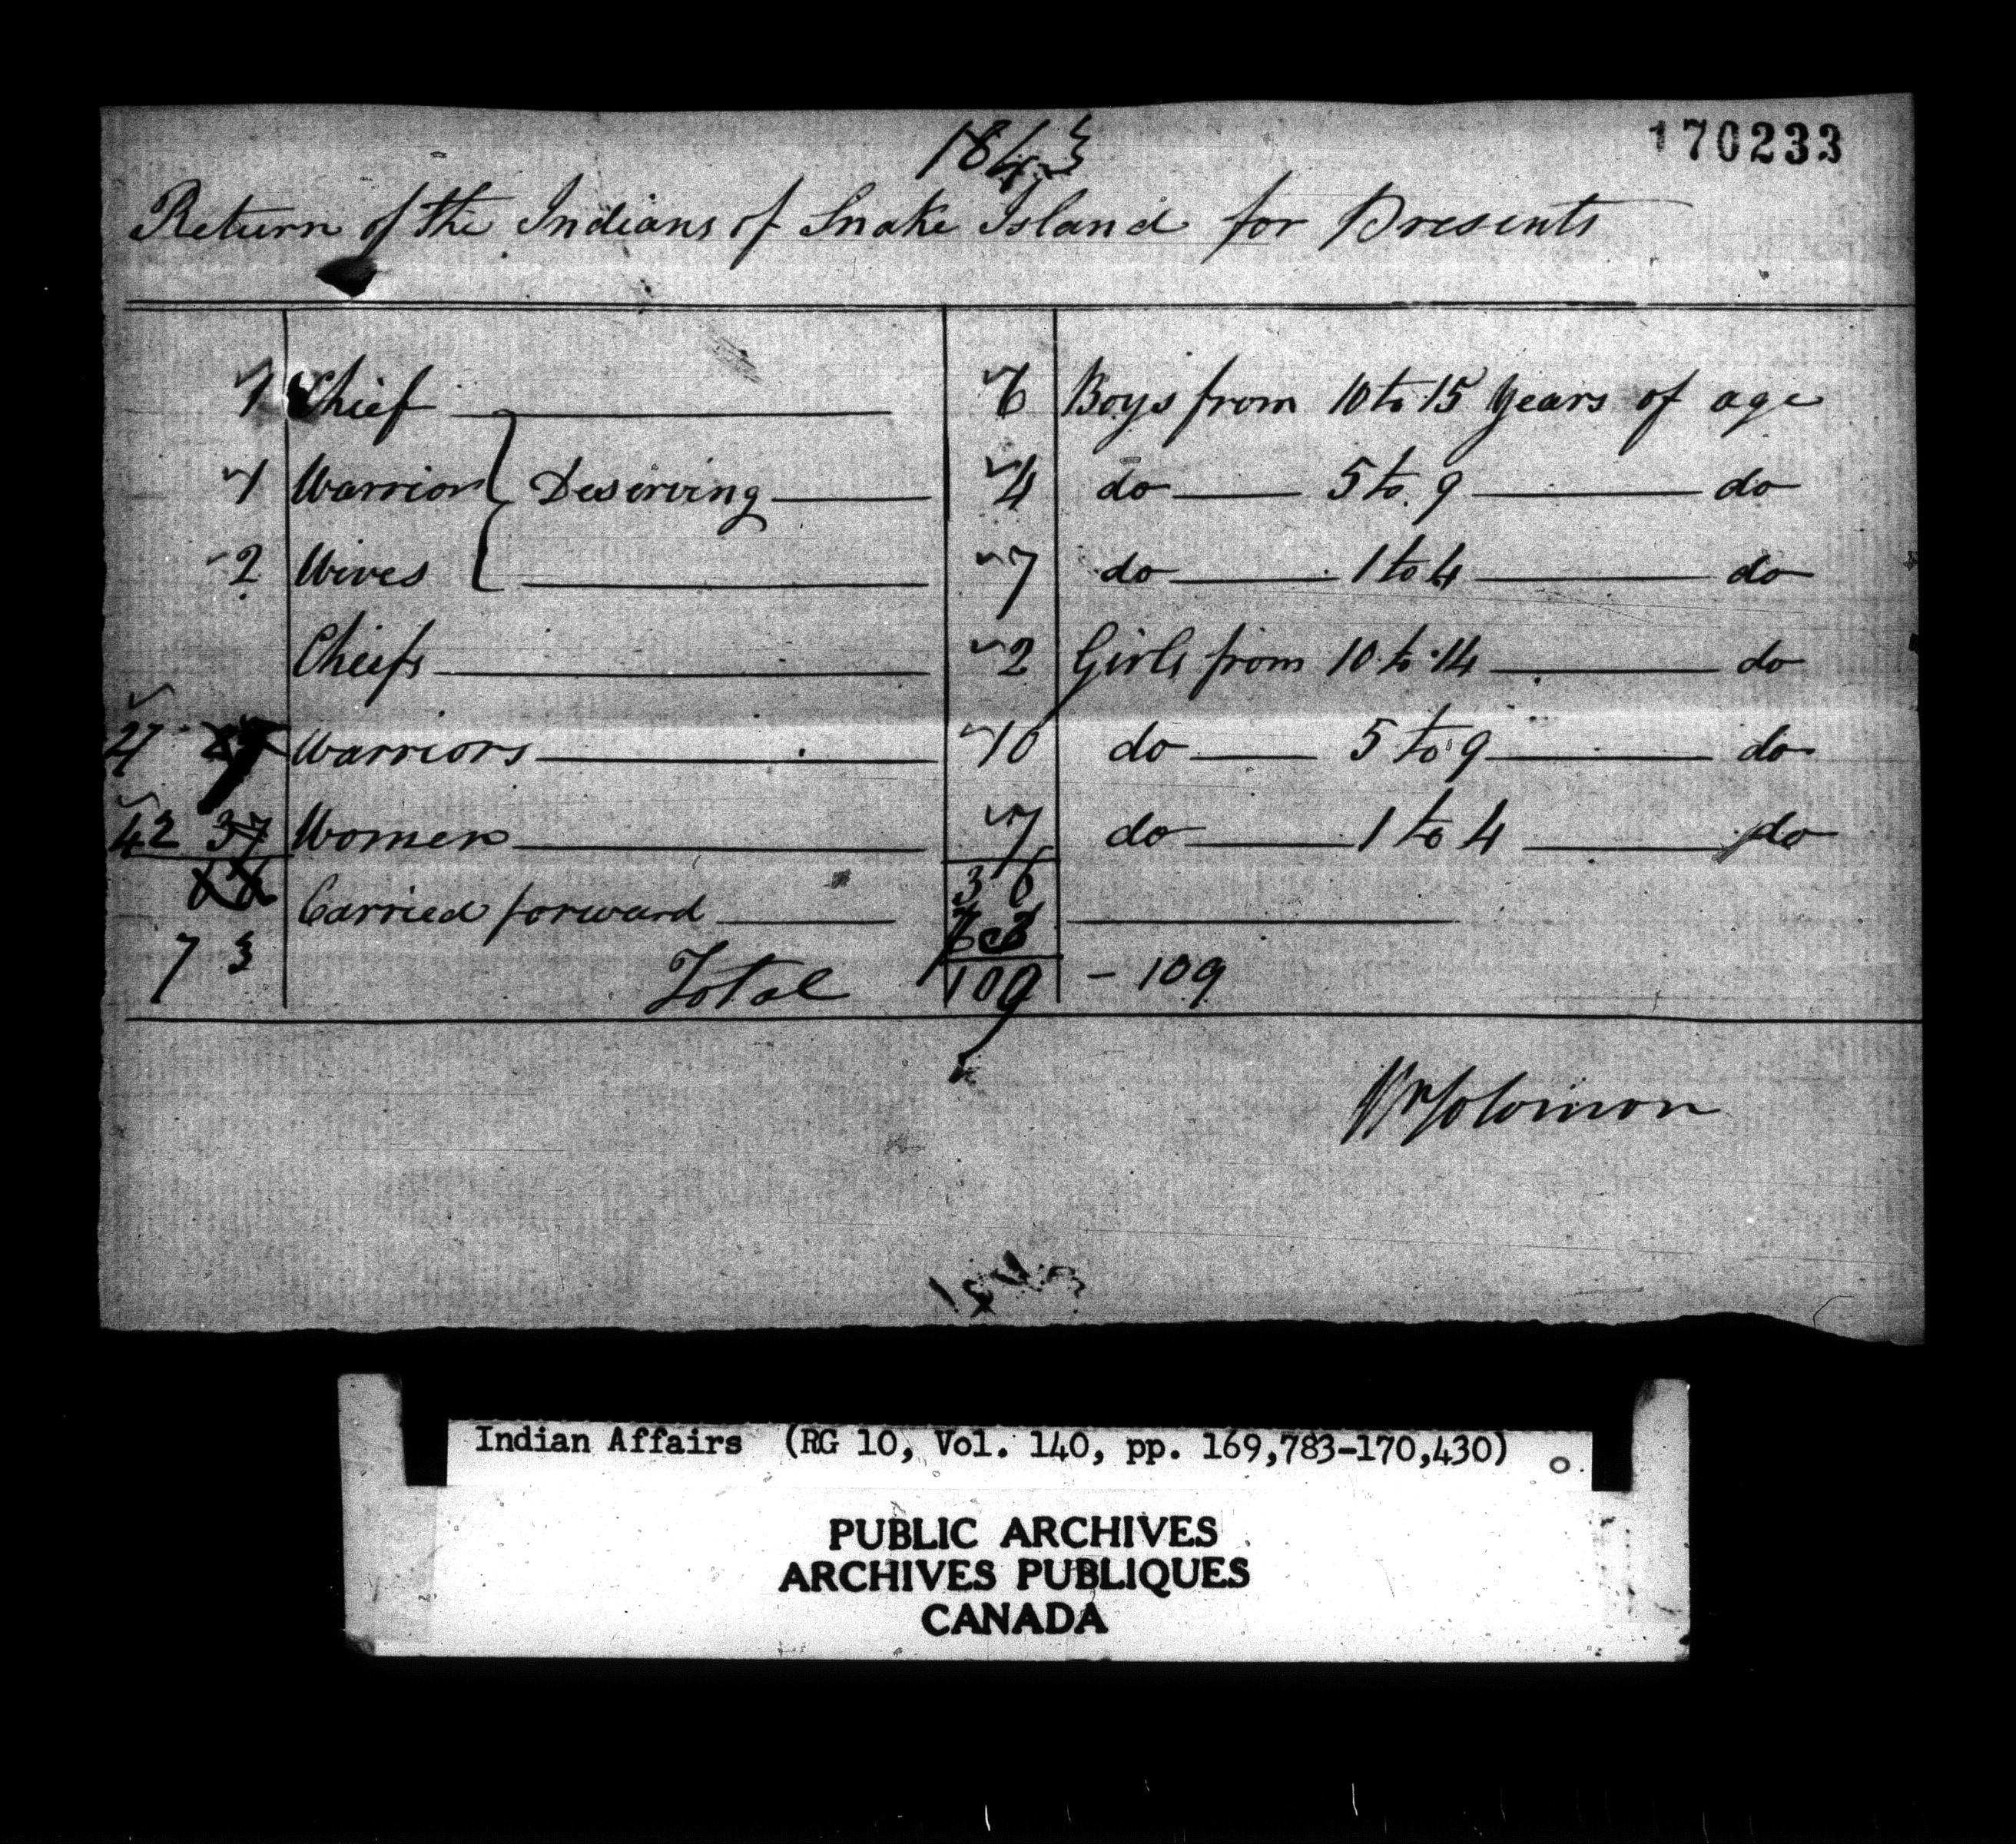 170233
1843
Return of the Indians of Snake Island for Presents
1 Chief
1 Warrior Deserving
2 Wives
Chiefs
27 Warriors
42 37 Women
Carried forward
73
6 Boys from 10 to 15 Years of age
4 do 5 to 9 do
7 do 1 to 4 do
2 Girls from 10 to 14 do
10 do 5 to 9 do
7 do 1 to 4 do
36
73
Total 109 - 109
Wm Solomon
1843
Indian Affairs (RG 10, Vol. 140, pp. 169,783-170,430)
PUBLIC ARCHIVES
ARCHIVES PUBLIQUES
CANADA